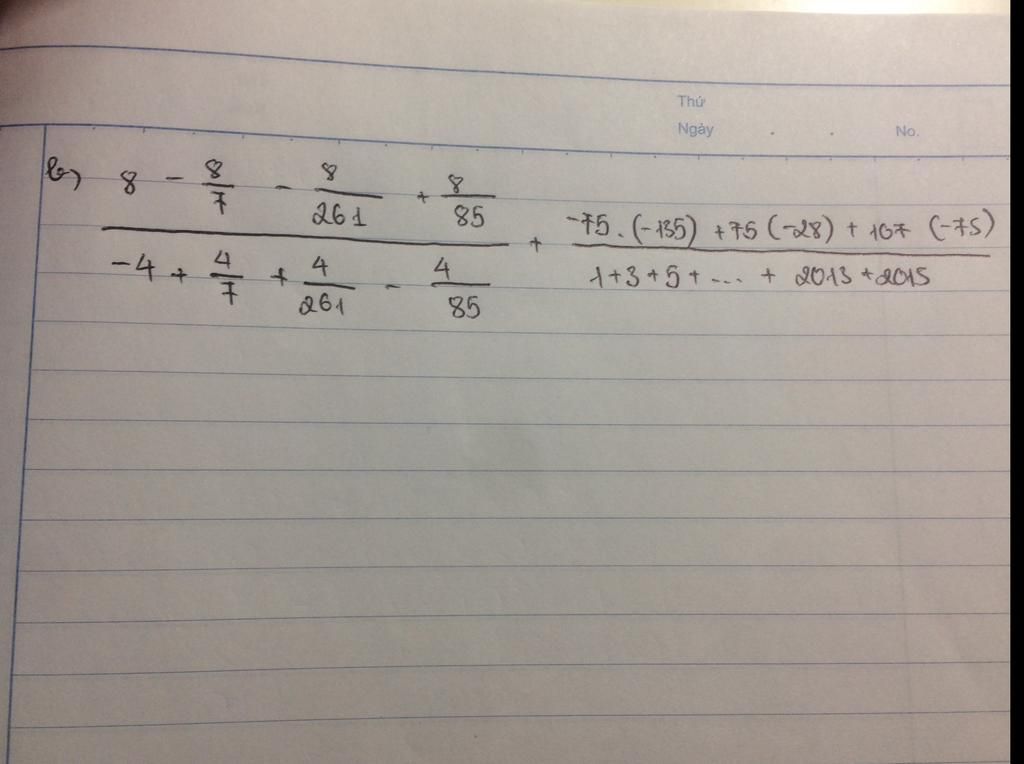 Thứ
Ngày . . No.
b) \frac{8 - \frac{8}{7} - \frac{8}{261} + \frac{8}{85}}{-4 + \frac{4}{7} + \frac{4}{261} - \frac{4}{85}} + \frac{-75.(-135) + 75(-28) + 107(-75)}{1+3+5+...+2013+2015}